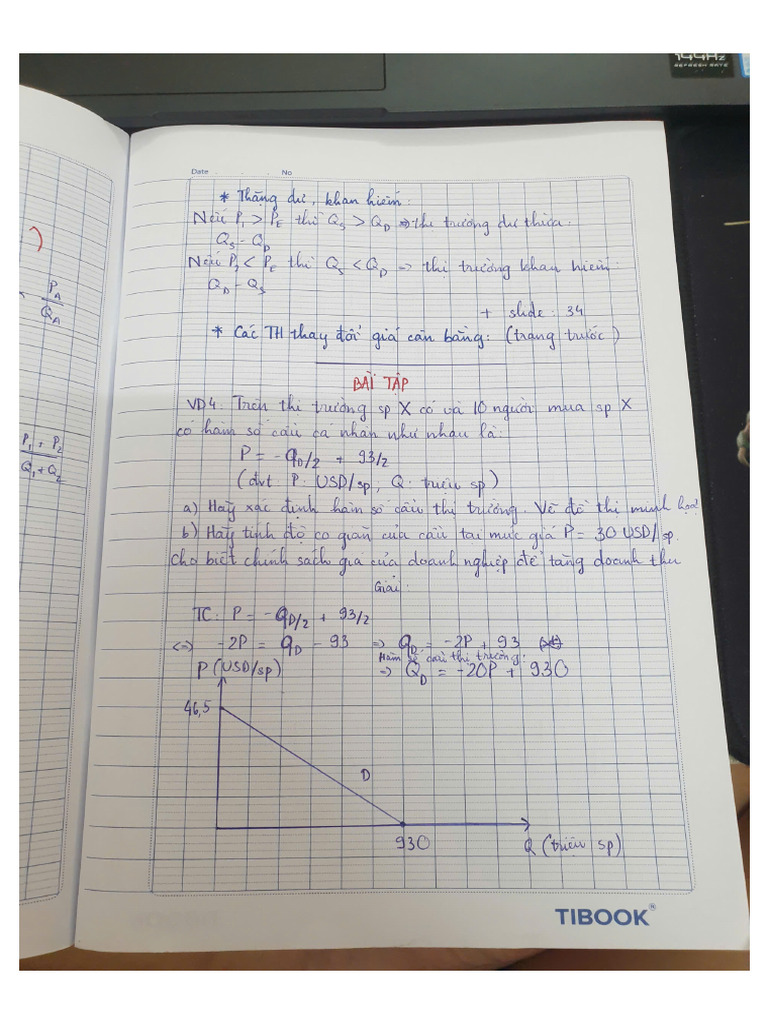 144Hz
REFRESH RATE
Date No
* Thặng dư, khan hiếm:
Nếu P₁ > P_E thì Q_S > Q_D => thị trường dư thừa:
Q_S - Q_D
Nếu P₂ < P_E thì Q_S < Q_D => thị trường khan hiếm:
Q_D - Q_S
+ slide: 34
* Các TH thay đổi giá cân bằng: (trang trước)
BÀI TẬP
VD4: Trên thị trường sp X có và 10 người mua sp X
có hàm số cầu cá nhân như nhau là:
P = -q_D/2 + 93/2
(đvt: P: USD/sp, Q: triệu sp)
a) Hãy xác định hàm số cầu thị trường. Vẽ đồ thị minh họa
b) Hãy tính độ co giãn của cầu tại mức giá P = 30 USD/sp.
cho biết chính sách giá của doanh nghiệp để tăng doanh thu
Giải:
TC: P = -q_D/2 + 93/2
<=> -2P = q_D - 93 => q_D = -2P + 93
Hàm số cầu thị trường:
=> Q_D = -20P + 930
P (USD/sp)
46,5
D
930
Q (triệu sp)
TIBOOK®
)
P_A
Q_A
P₁ + P₂
Q₁ + Q₂